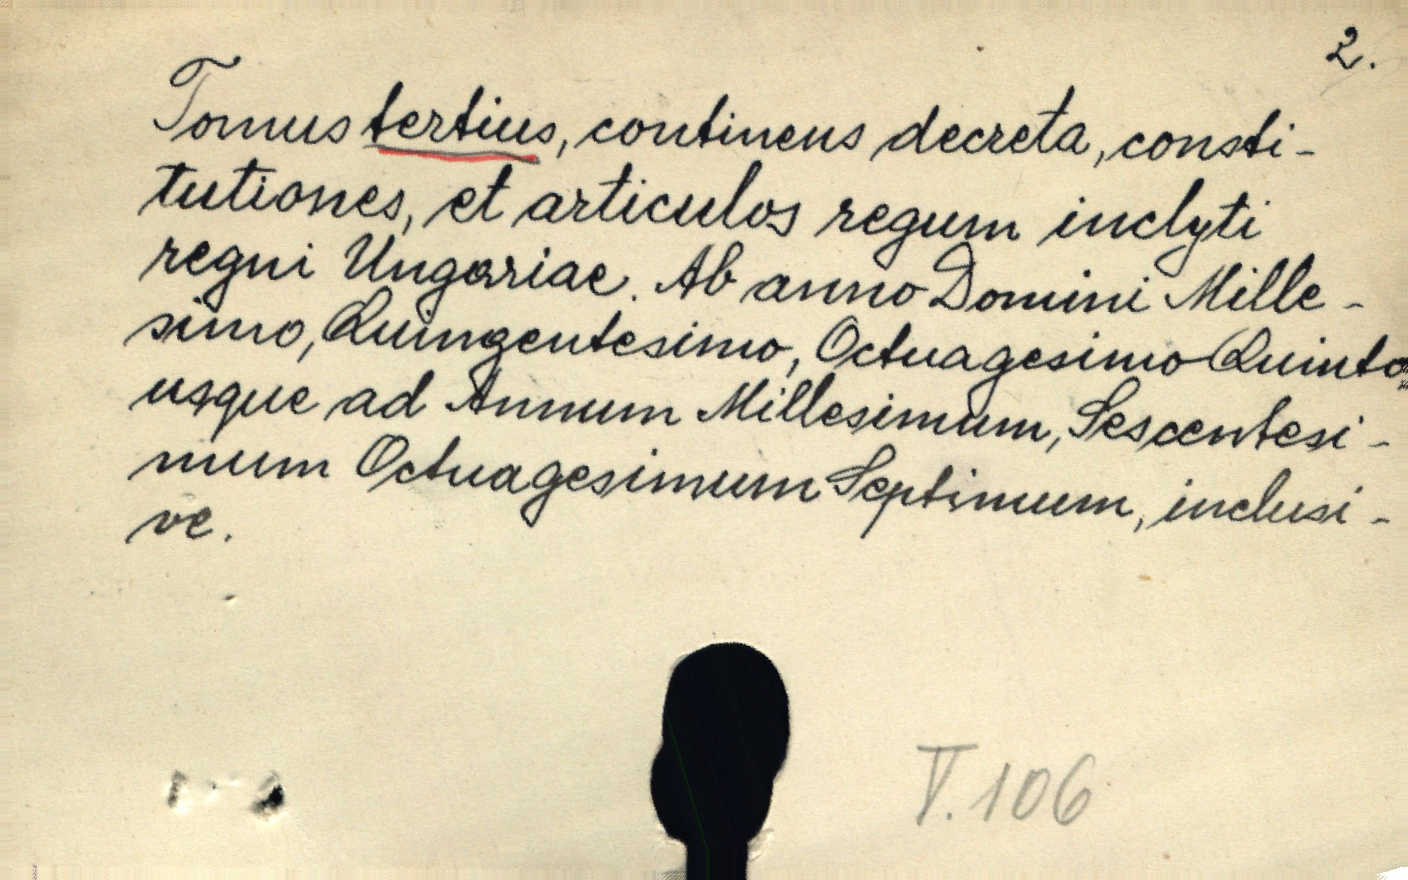 2.
Tomus tertius, continens decreta, consti-
tutiones, et articulos regum inclyti
regni Ungariae. Ab anno Domini Mille-
simo, Quingentesimo, Octuagesimo Quinto,
usque ad Annum Millesimum, Sescentesi-
mum Octuagesimum Septimum, inclusi-
ve.
V. 106